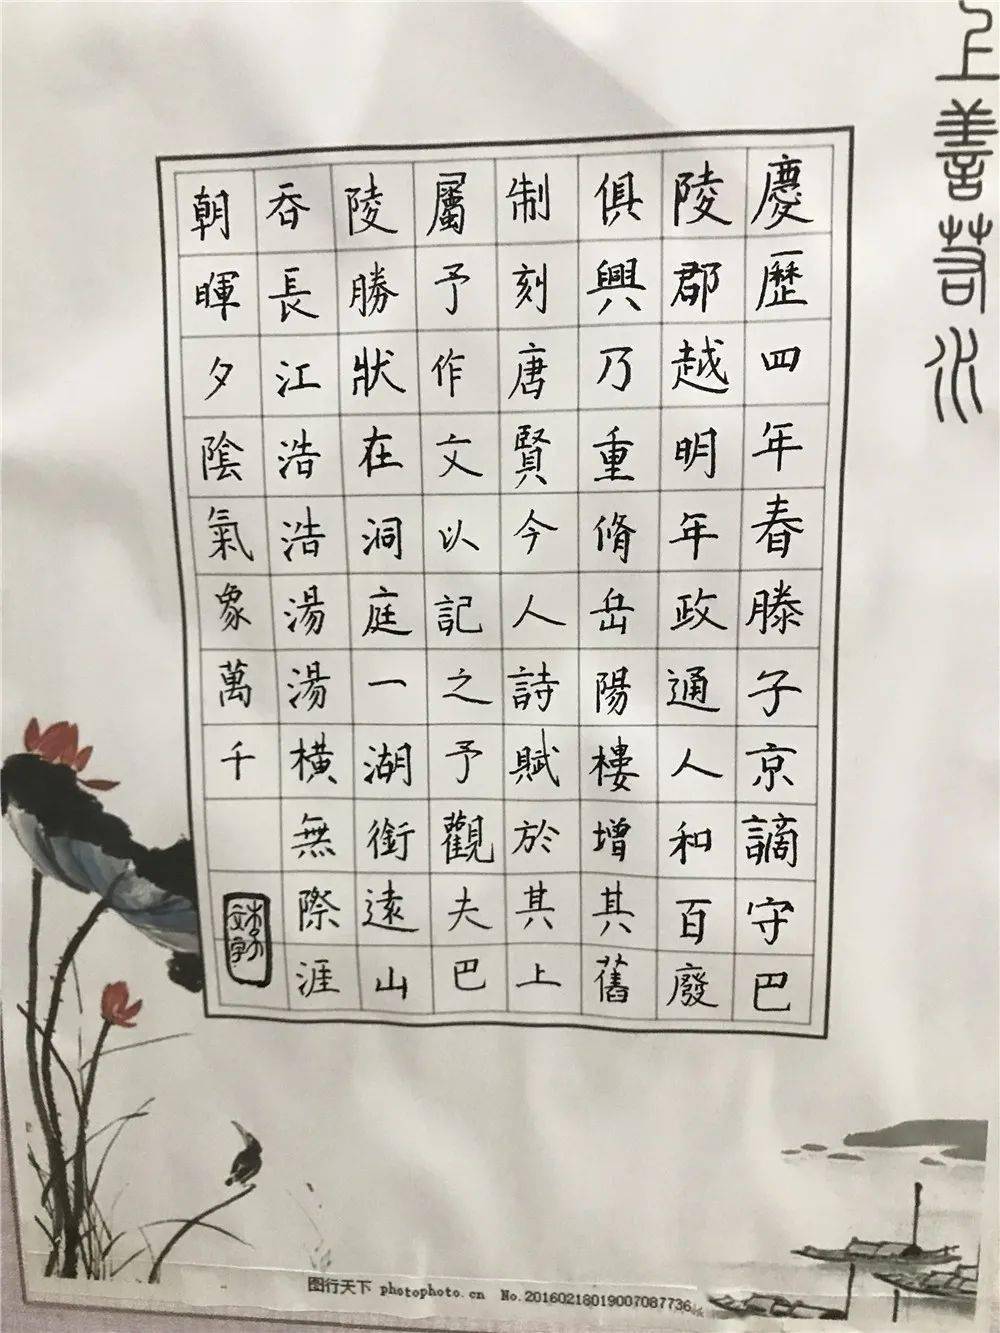 上善若水
慶歷四年春滕子京謫守巴
陵郡越明年政通人和百廢
俱興乃重脩岳陽樓增其舊
制刻唐賢今人詩賦於其上
屬予作文以記之予觀夫巴
陵勝狀在洞庭一湖銜遠山
吞長江浩浩湯湯橫無際涯
朝暉夕陰氣象萬千
图行天下 photophoto.cn No.20160218019007087736